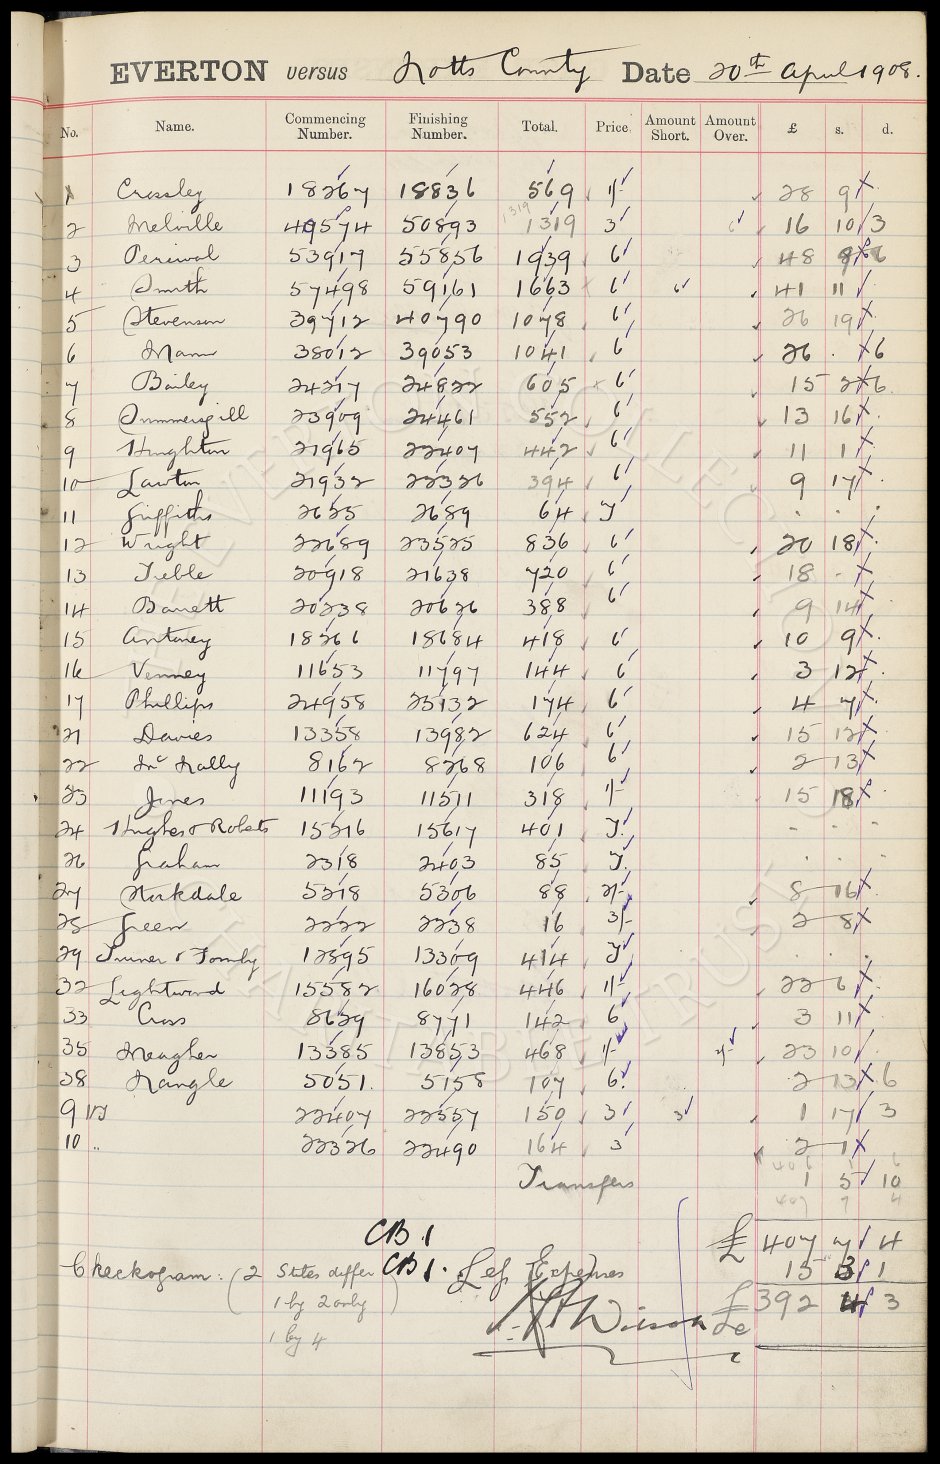 EVERTON versus Notts County Date 20th April 1908.
No. Name. Commencing Number. Finishing Number. Total. Price. Amount Short. Amount Over. £ s. d.
1 Crossley 18267 18836 569 1/- 28 9
2 Melville 49574 50893 1319 3 16 10 3
3 Percival 53917 55856 1939 6 48 9 6
4 Smith 57498 59161 1663 6 6 41 11
5 Stevenson 39712 40790 1078 6 26 19
6 Mann 38012 39053 1041 6 26 . 6
7 Bailey 24217 24822 605 6 15 2 6
8 Summersgill 23909 24461 552 6 13 16
9 Houghton 21965 22407 442 6 11 1
10 Lawton 21932 22326 394 6 9 17
11 Griffiths 2625 2689 64 . . .
12 Wright 22689 23525 836 6 20 18
13 Treble 20918 21638 720 6 18 -
14 Barrett 20238 20626 388 6 9 14
15 Antoney 18266 18684 418 6 10 9
16 Venmey 11653 11797 144 6 3 12
17 Phillips 24958 25132 174 6 4 7
21 Davies 13358 13982 624 6 15 12
22 McNally 8162 8268 106 6 2 13
23 Jones 11193 11511 318 1/- 15 18
24 Hughes & Roberts 15216 15617 401 - - -
26 Graham 2318 2403 85 . . -
27 Stockdale 5218 5306 88 2/- 8 16
28 Green 2222 2238 16 3/- 2 8
29 Turner & Formby 12895 13309 414 . . .
32 Lightwood 15582 16028 446 1/- 22 6
33 Cross 8629 8771 142 6 3 11
35 Meagher 13385 13853 468 1/- 2/- 23 10
38 Nangle 5051. 5158 107 6 2 13 6
9 22407 22557 150 3 3 1 17 3
10 .. 22326 22490 164 3 2 1
Transfers 1 5 10
407 7 4
CB.1 £ 407 7 4
Checkogram: (2 States differ CB1. Less Expenses 15 3 1
1 by 2 only) Wilson £ 392 4 3
1 by 4
EVERTON COLLECTION CHARITABLE TRUST